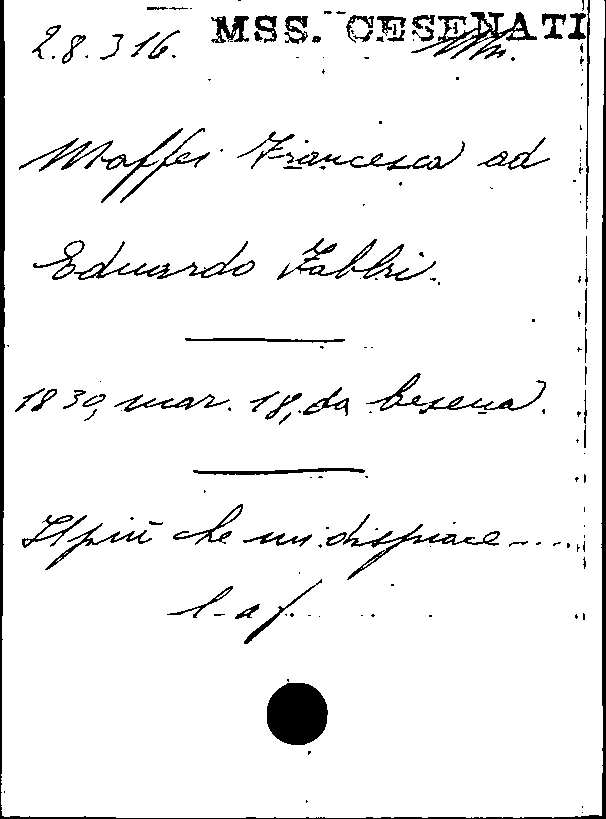 MSS. CESENATI
2.8.316.
Maffei Francesca ad
Eduardo Fabbri.
1830, mar. 18, da Cesena.
Il più che mi dispiace....
l. a f.